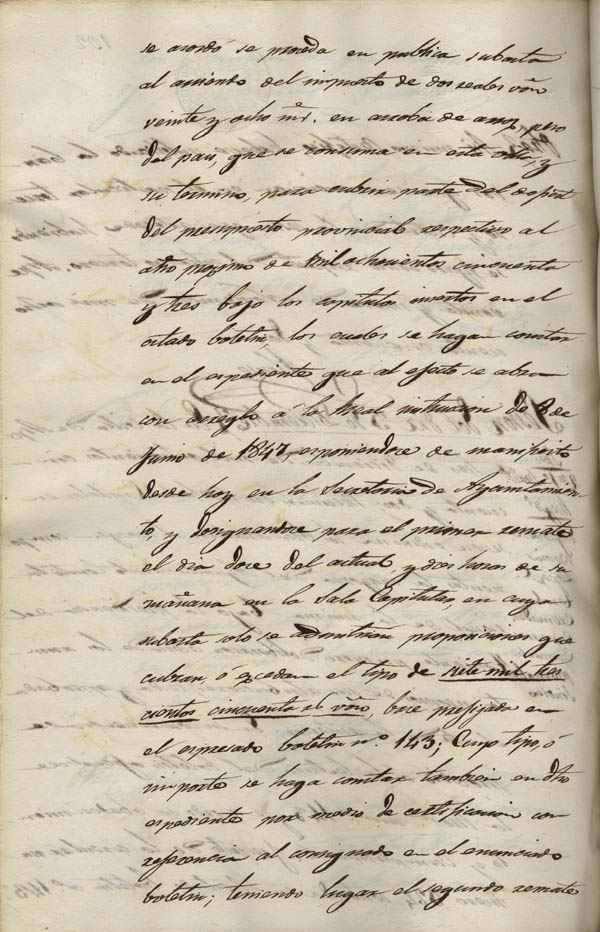 se acordó se proceda en publica subasta
al arriendo del impuesto de dos reales vón
veinte y ocho mr. en arroba de arroz, pero
del pais, que se consuma en esta villa, y
su termino, para cubrir parte del deficit
del presupuesto provincial respectivo al
año proximo de mil ochocientos cincuenta
y tres bajo los capitulos insertos en el
citado boletin, los cuales se hagan constar
en el espediente que al efecto se abra
con arreglo á la Real instruccion de 8 de
Junio de 1847, esponiendose de manifiesto
desde hoy en la Secretaria de Ayuntamien-
to, y designandose para el primer remate
el dia doce del actual, y diez horas de su
mañana en la Sala Capitular, en cuya
subasta solo se admitirán proposiciones que
cubran, ó excedan el tipo de siete mil tres
cientos cincuenta rl vón, base prefijada en
el espresado boletin nº. 143; Cuyo tipo, ó
importe se haga constar tambien en dho
espediente por medio de certificacion con
referencia al consignado en el enunciado
boletin; teniendo lugar el segundo remate